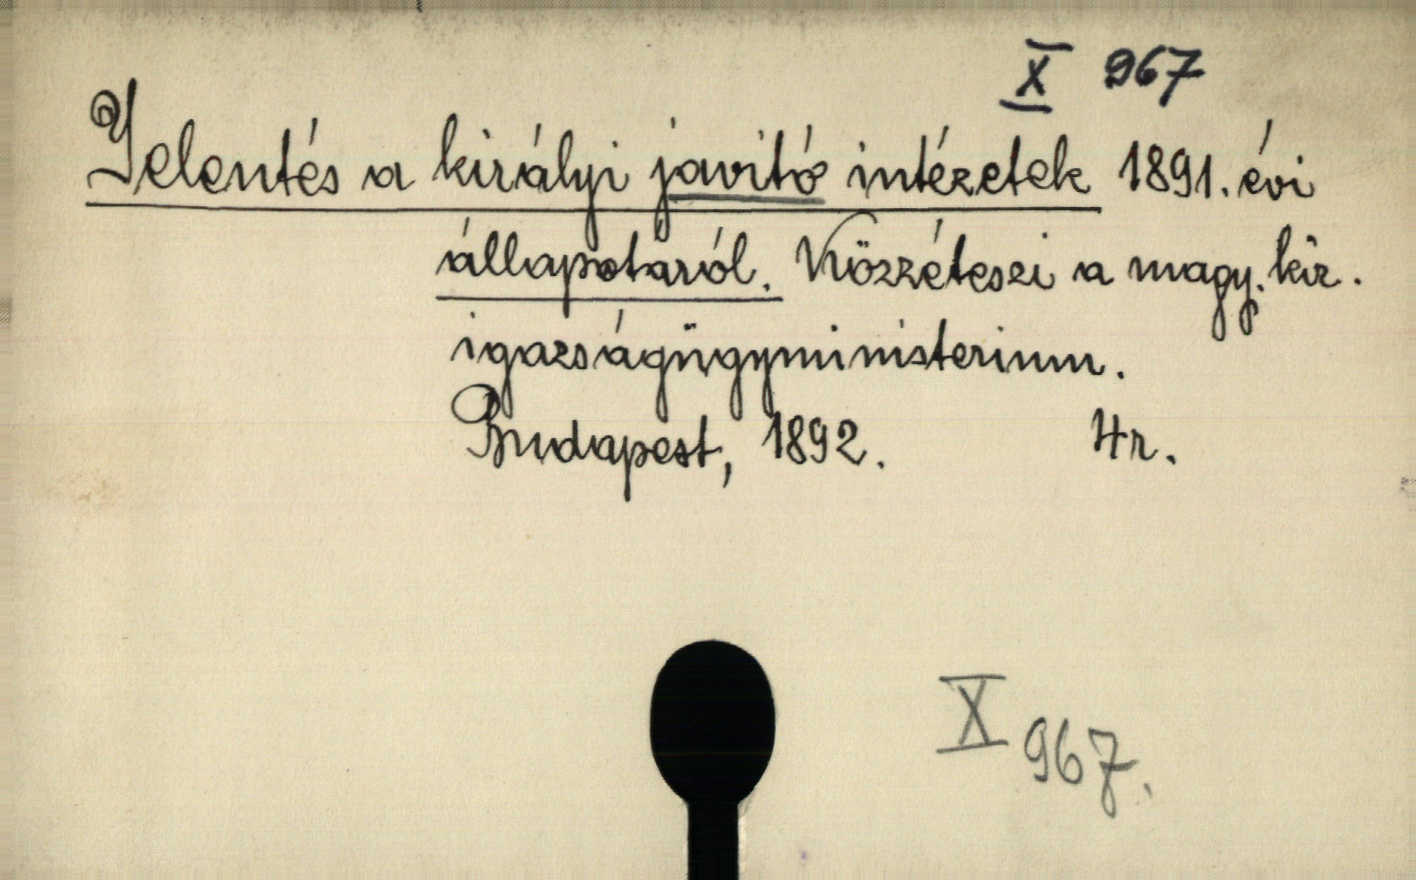 X 967
Jelentés a királyi javitó intézetek 1891. évi
állapotáról. Közzéteszi a magy. kir.
igazságügyministerium.
Budapest, 1892. 4r.
X 967.